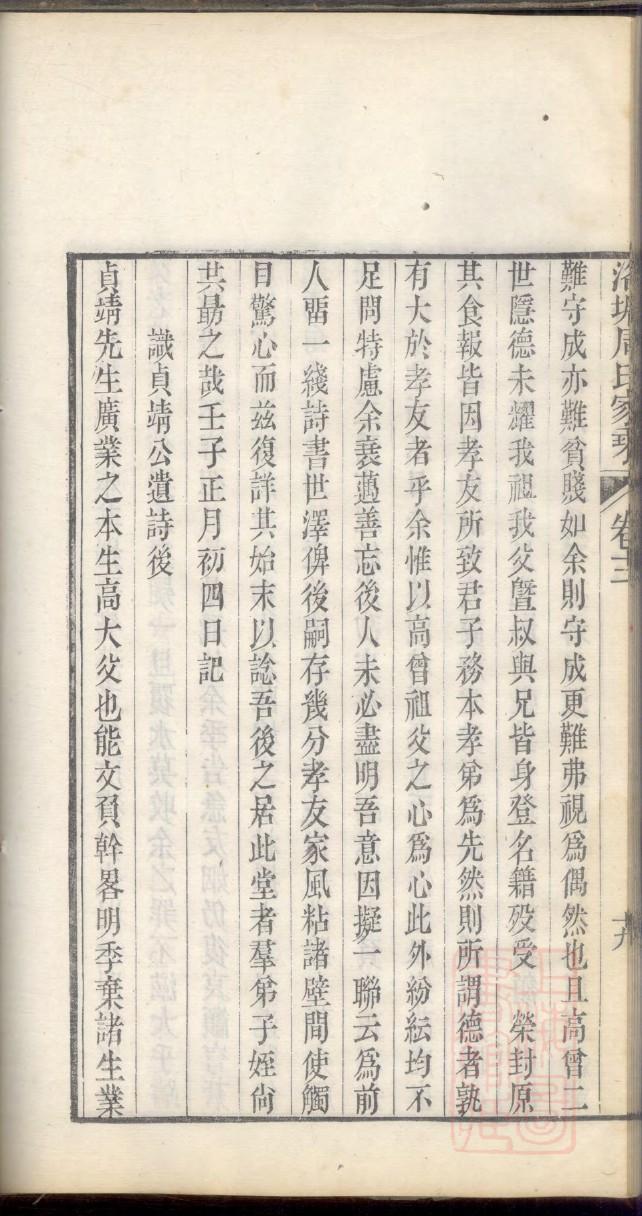 洛塘周氏家乘 卷三 十九
難守成亦難貧賤如余則守成更難弗視爲偶然也且高曾二
世隱德未耀我祖我父曁叔與兄皆身登名籍歿受 榮封原
其食報皆因孝友所致君子務本孝弟爲先然則所謂德者孰
有大於孝友者乎余惟以高曾祖父之心爲心此外紛紜均不
足問特慮余衰邁善忘後人未必盡明吾意因擬一聯云爲前
人畱一綫詩書世澤俾後嗣存幾分孝友家風粘諸壁間使觸
目驚心而茲復詳其始末以諗吾後之居此堂者羣弟子姪尙
共勗之哉壬子正月初四日記
識貞靖公遺詩後
貞靖先生廣業之本生高大父也能文負幹畧明季棄諸生業